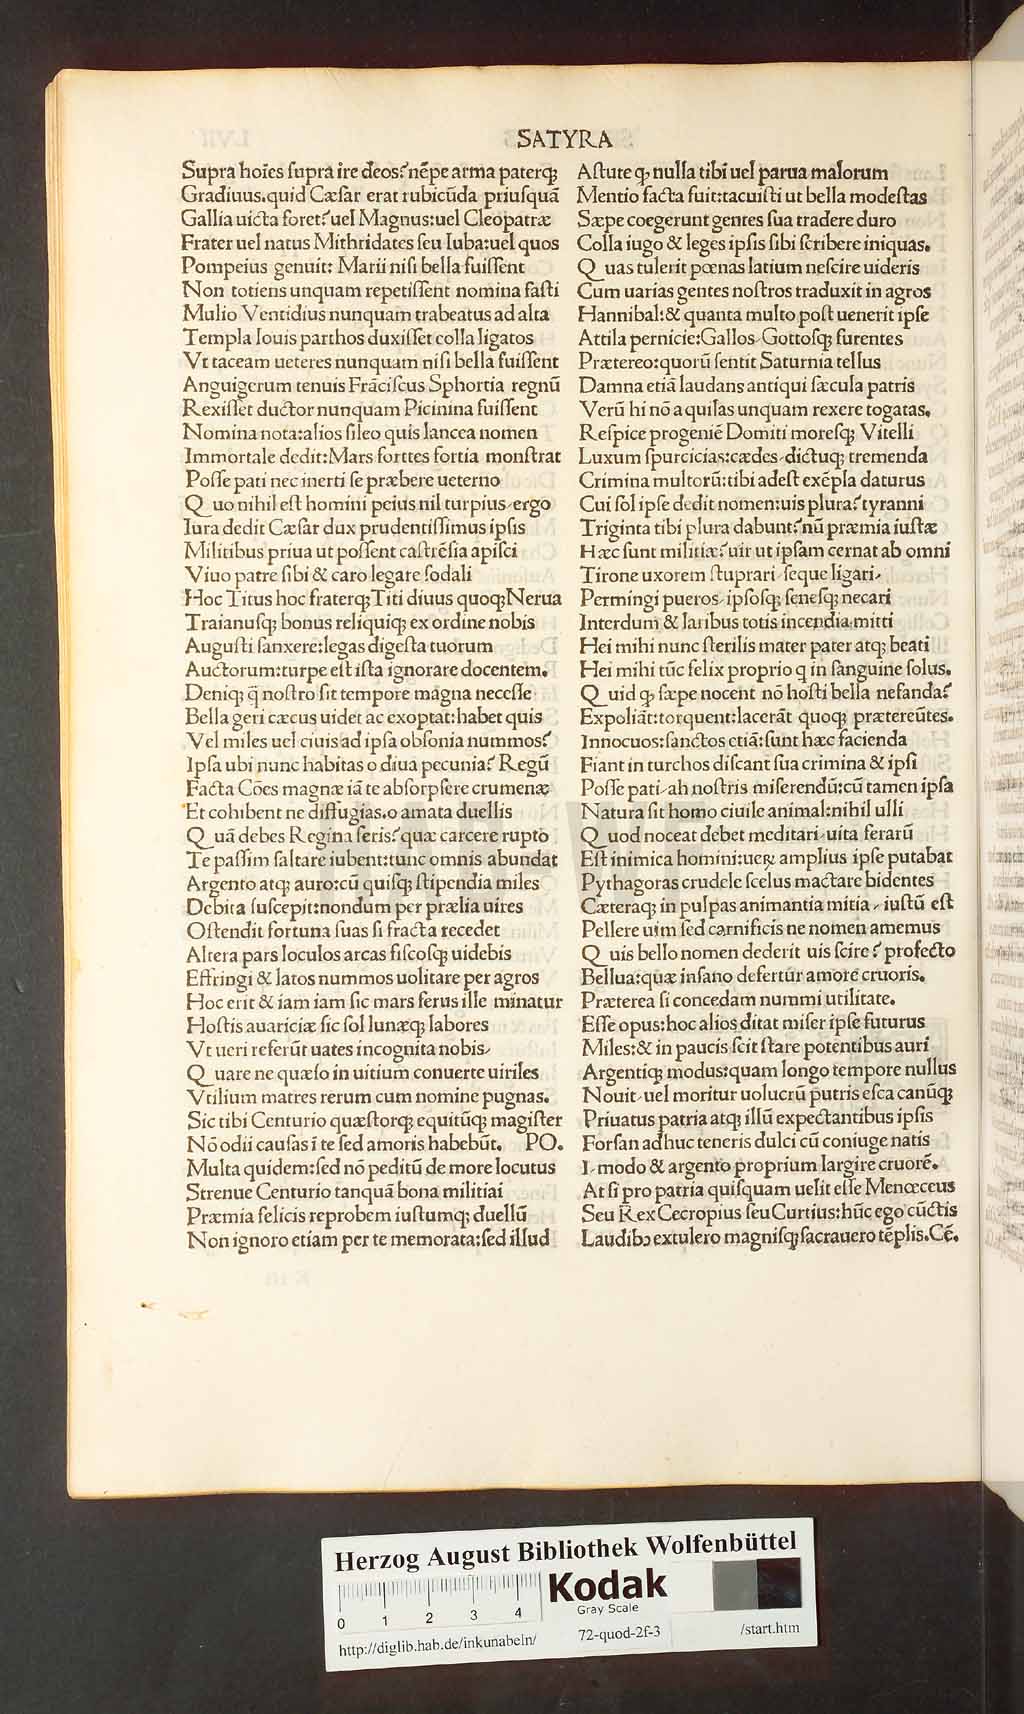 SATYRA
Supra hoīes ſupra ire deos? nēpe arma paterq;
Gradiuus. quid Cæſar erat rubicūda priuſquā
Gallia uicta foret? uel Magnus: uel Cleopatræ
Frater uel natus Mithridates ſeu Iuba: uel quos
Pompeius genuit: Marii niſi bella fuiſſent
Non totiens unquam repetiſſent nomina faſti
Mulio Ventidius nunquam trabeatus ad alta
Templa Iouis parthos duxiſſet colla ligatos
Vt taceam ueteres nunquam niſi bella fuiſſent
Anguigerum tenuis Frāciſcus Sphortia regnū
Rexiſſet ductor nunquam Picinina fuiſſent
Nomina nota: alios ſileo quis lancea nomen
Immortale dedit: Mars fortes fortia monſtrat
Poſſe pati nec inerti ſe præbere ueterno
Quo nihil eſt homini peius nil turpius, ergo
Iura dedit Cæſar dux prudentiſſimus ipſis
Militibus priua ut poſſent caſtrēſia apiſci
Viuo patre ſibi & caro legare ſodali
Hoc Titus hoc fraterq; Titi diuus quoq; Nerua
Traianuſq; bonus reliquiq; ex ordine nobis
Auguſti ſanxere: legas digeſta tuorum
Auctorum: turpe eſt iſta ignorare docentem.
Deniq; q̄ noſtro ſit tempore magna neceſſe
Bella geri cæcus uidet ac exoptat: habet quis
Vel miles uel ciuis ad ipſa obſonia nummos?
Ipſa ubi nunc habitas o diua pecunia? Regū
Facta Cōes magnæ iā te abſorpſere crumenæ
Et cohibent ne diffugias. o amata duellis
Quā debes Regina ſeris? quæ carcere rupto
Te paſſim ſaltare iubent: tunc omnis abundat
Argento atq; auro: cū quiſq; ſtipendia miles
Debita ſuſcepit: nondum per prælia uires
Oſtendit fortuna ſuas ſi fracta recedet
Altera pars loculos arcas fiſcoſq; uidebis
Effringi & latos nummos uolitare per agros
Hoc erit & iam iam ſic mars ferus ille minatur
Hoſtis auariciæ ſic ſol lunæq; labores
Vt ueri referūt uates incognita nobis,
Quare ne quæſo in uitium conuerte uiriles
Vtilium matres rerum cum nomine pugnas.
Sic tibi Centurio quæſtorq; equitūq; magiſter
Nō odii cauſas ī te ſed amoris habebūt. PO.
Multa quidem: ſed nō peditū de more locutus
Strenue Centurio tanquā bona militiai
Præmia felicis reprobem iuſtumq; duellū
Non ignoro etiam per te memorata: ſed illud
Aſtute q. nulla tibi uel parua malorum
Mentio facta fuit: tacuiſti ut bella modeſtas
Sæpe coegerunt gentes ſua tradere duro
Colla iugo & leges ipſis ſibi ſcribere iniquas.
Quas tulerit pœnas latium neſcire uideris
Cum uarias gentes noſtros traduxit in agros
Hannibal: & quanta multo poſt uenerit ipſe
Attila pernicie: Gallos, Gottoſq; furentes
Prætereo: quorū ſentit Saturnia tellus
Damna etiā laudans antiqui ſæcula patris
Verū hi nō aquilas unquam rexere togatas.
Reſpice progeniē Domiti moreſq; Vitelli
Luxum ſpurcicias: cædes, dictuq; tremenda
Crimina multorū: tibi adeſt exēpla daturus
Cui ſol ipſe dedit nomen: uis plura? tyranni
Triginta tibi plura dabunt? nū præmia iuſtæ
Hæc ſunt militiæ? uir ut ipſam cernat ab omni
Tirone uxorem ſtuprari, ſeque ligari,
Permingi pueros, ipſoſq; ſeneſq; necari
Interdum & laribus totis incendia mitti
Hei mihi nunc ſterilis mater pater atq; beati
Hei mihi tūc felix proprio q in ſanguine ſolus.
Quid q. ſæpe nocent nō hoſti bella nefanda?
Expoliāt: torquent: lacerāt quoq; prætereūtes.
Innocuos: ſanctos etiā: ſunt hæc facienda
Fiant in turchos diſcant ſua crimina & ipſi
Poſſe pati, ah noſtris miſerendū: cū tamen ipſa
Natura ſit homo ciuile animal: nihil ulli
Quod noceat debet meditari, uita ferarū
Eſt inimica homini: ueꝝ amplius ipſe putabat
Pythagoras crudele ſcelus mactare bidentes
Cæteraq; in pulpas animantia mitia, iuſtū eſt
Pellere uim ſed carnificis ne nomen amemus
Quis bello nomen dederit uis ſcire? profecto
Bellua: quæ inſano defertur amore cruoris.
Præterea ſi concedam nummi utilitate.
Eſſe opus: hoc alios ditat miſer ipſe futurus
Miles: & in paucis ſcit ſtare potentibus auri
Argentiq; modus: quam longo tempore nullus
Nouit, uel moritur uolucrū putris eſca canūq;
Priuatus patria atq; illū expectantibus ipſis
Forſan adhuc teneris dulci cū coniuge natis
I, modo & argento proprium largire cruorē.
At ſi pro patria quiſquam uelit eſſe Menœceus
Seu Rex Cecropius ſeu Curtius: hūc ego cūctis
Laudibꝫ extulero magniſq; ſacrauero tēplis. Cē.
Herzog August Bibliothek Wolfenbüttel
Kodak
Gray Scale
0 1 2 3 4
http://diglib.hab.de/inkunabeln/ 72-quod-2f-3 /start.htm